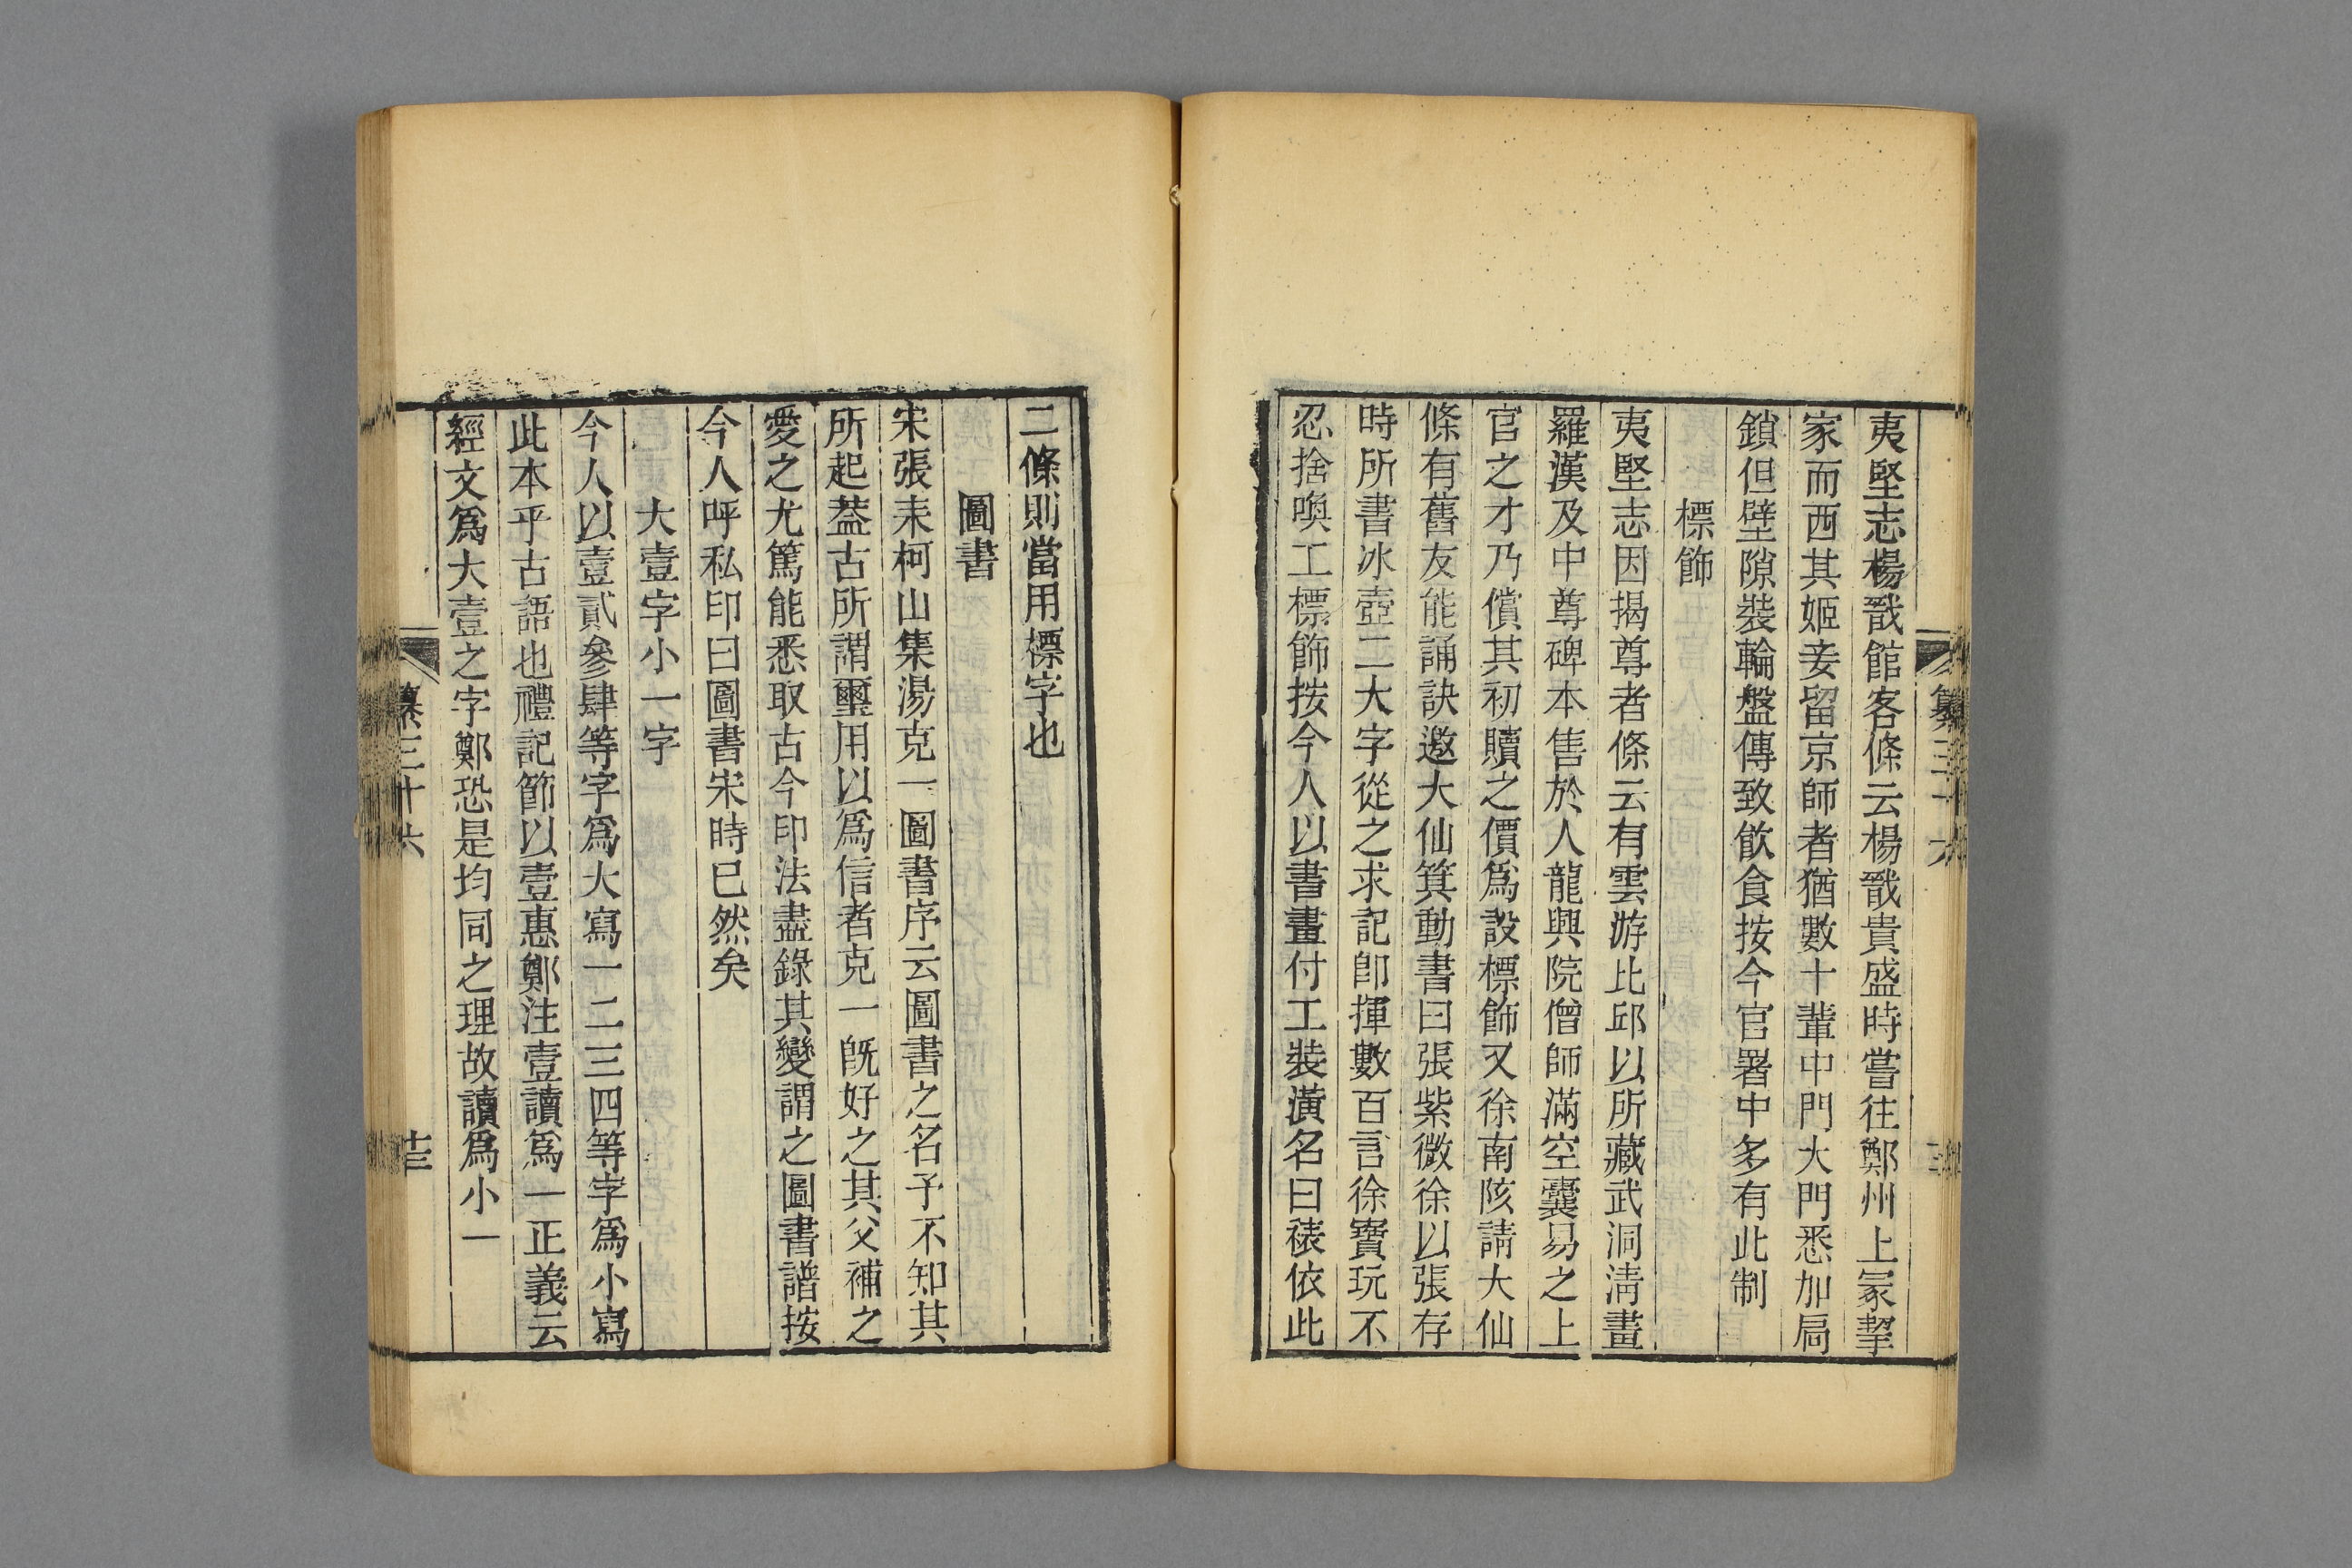 夷堅志楊戩館客條云楊戩貴盛時嘗往鄭州上冢挈
家而西其姬妾留京師者猶數十輩中門大門悉加扃
鎖但壁隙裝輪盤傳致飮食按今官署中多有此制
標飾
夷堅志因揭尊者條云有雲游比邱以所藏武洞淸畫
羅漢及中尊碑本售於人龍興院僧師滿空囊易之上
官之才乃償其初贖之價爲設標飾又徐南陔請大仙
條有舊友能誦訣邀大仙箕動書曰張紫微徐以張存
時所書冰壺二大字從之求記卽揮數百言徐寶玩不
忍捨喚工標飾按今人以書畫付工裝潢名曰裱依此
二條則當用標字也
圖書
宋張耒柯山集湯克一圖書序云圖書之名予不知其
所起葢古所謂璽用以爲信者克一旣好之其父補之
愛之尤篤能悉取古今印法盡錄其變謂之圖書譜按
今人呼私印曰圖書宋時已然矣
大壹字小一字
今人以壹貳參肆等字爲大寫一二三四等字爲小寫
此本乎古語也禮記節以壹惠鄭注壹讀爲一正義云
經文爲大壹之字鄭恐是均同之理故讀爲小一
纂三十六